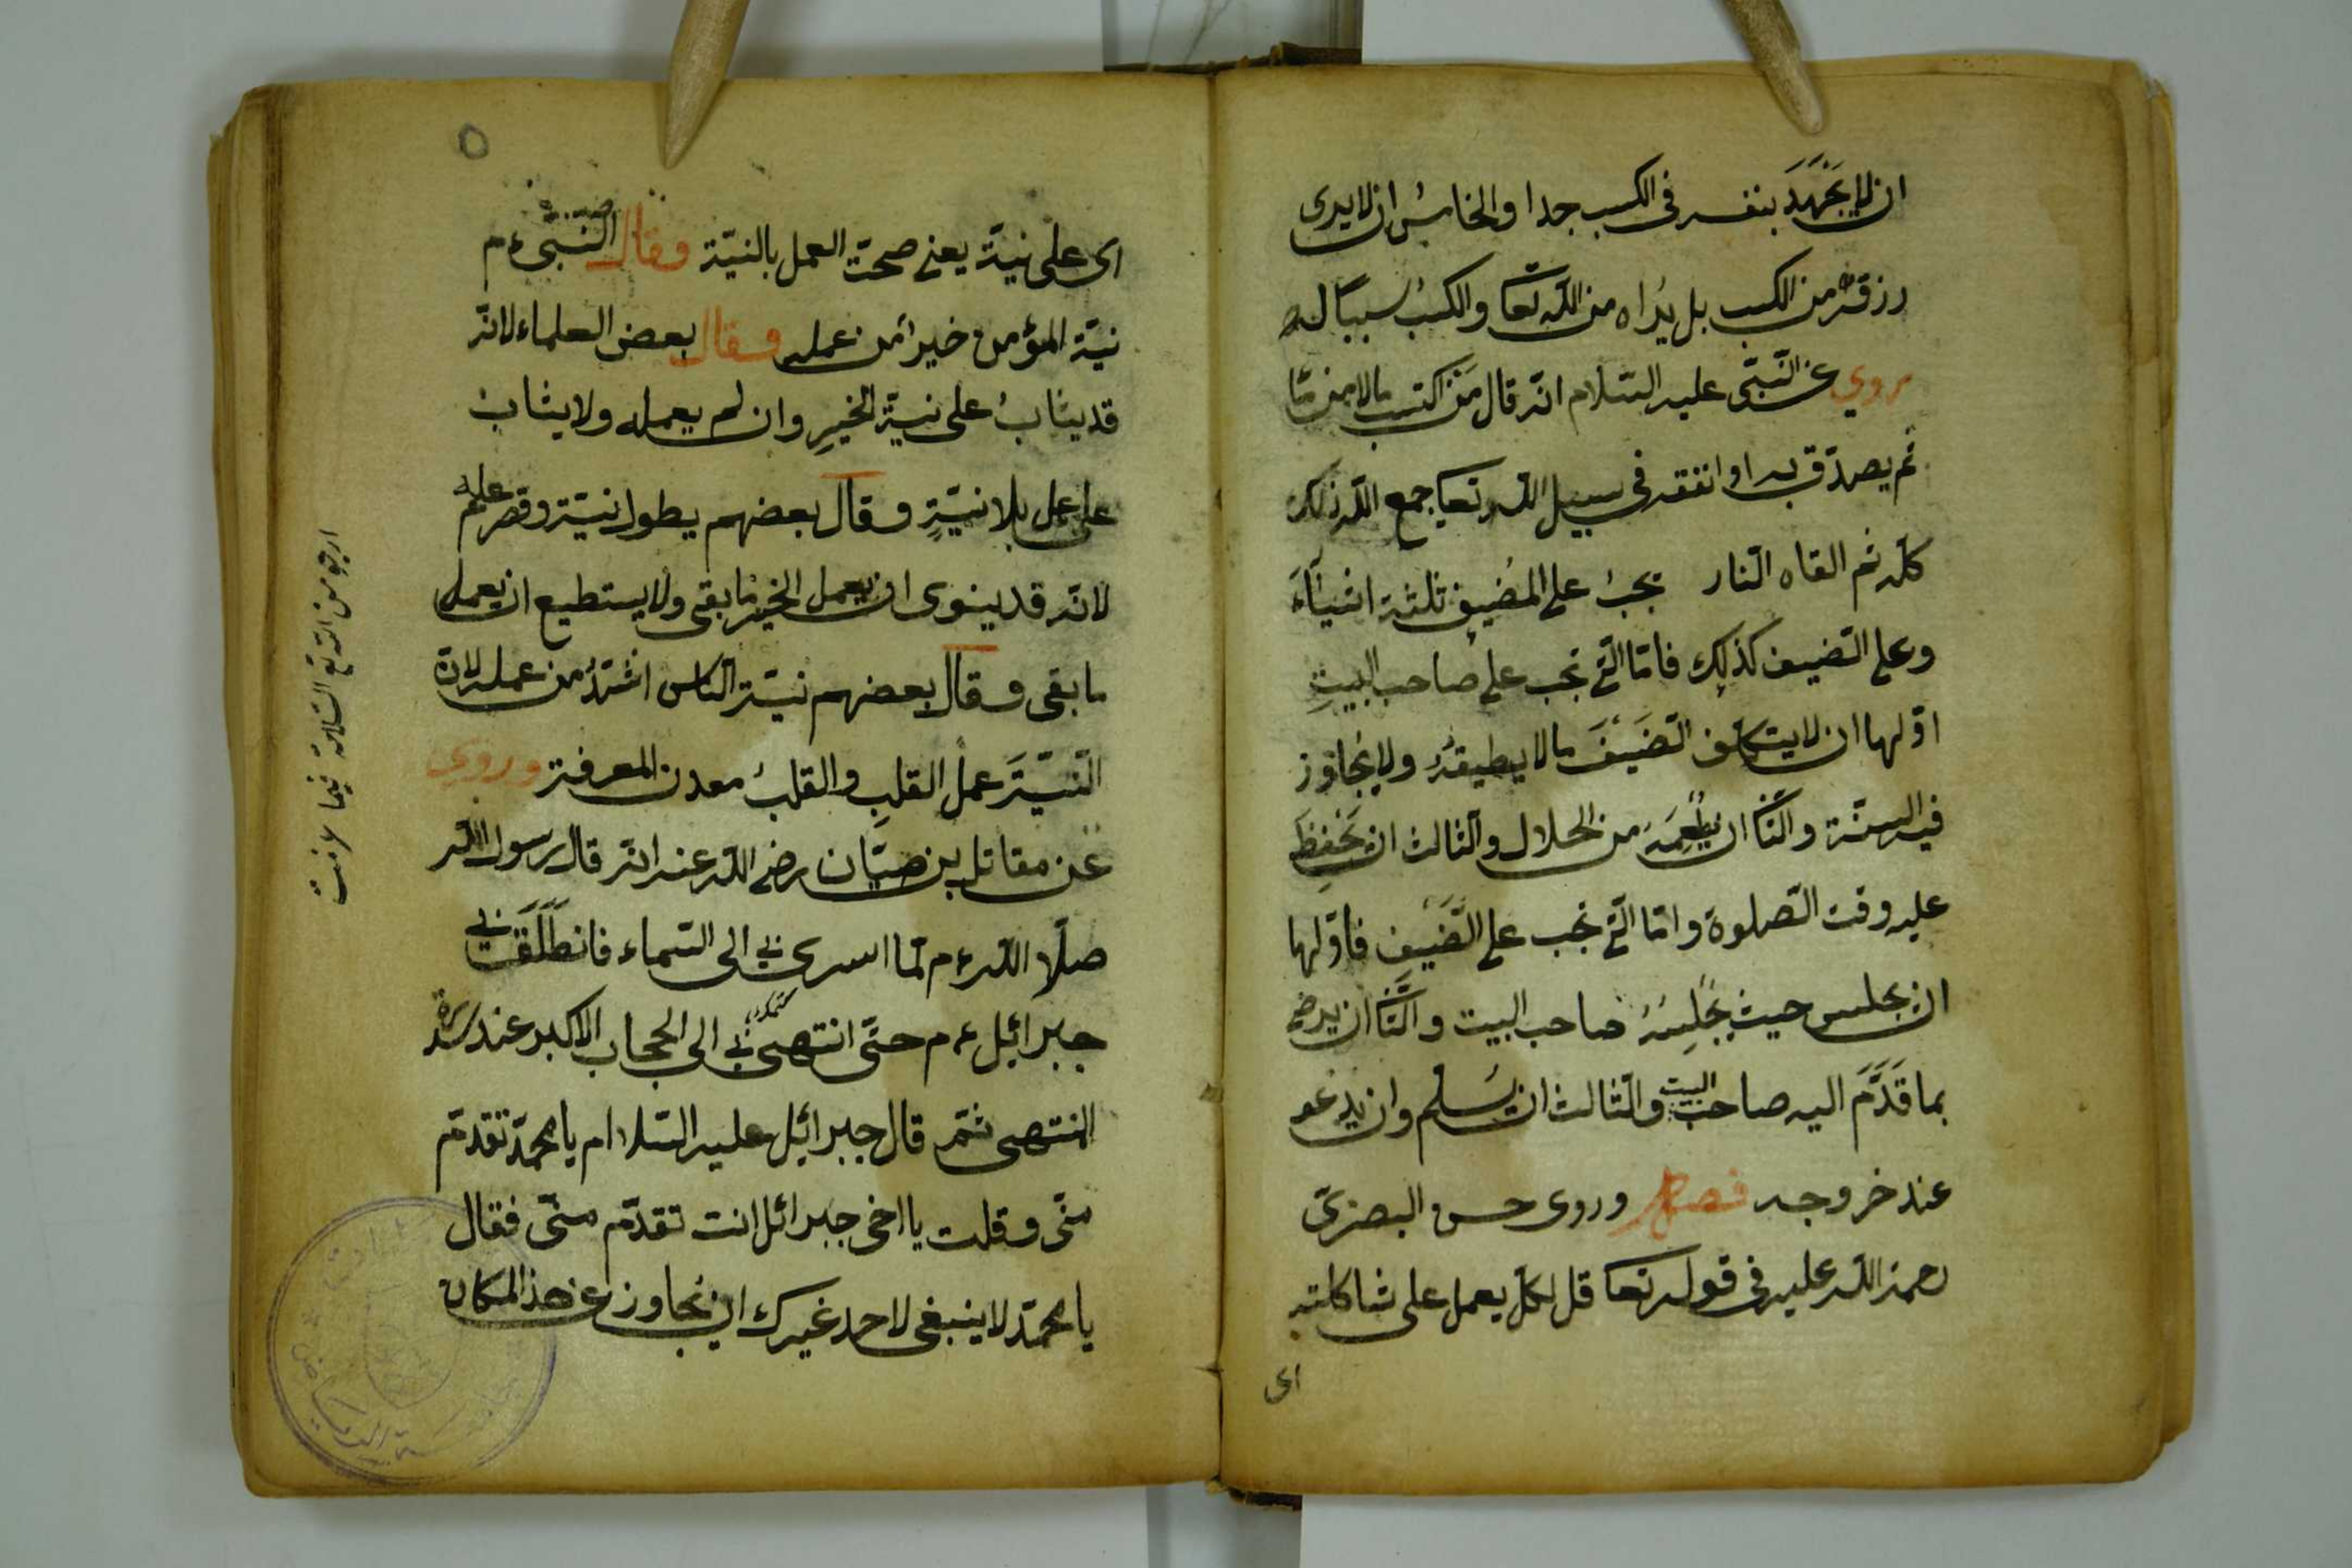 ان لا يَجْهَدَ بنفسه فى الكسب جدا والخامسُ ان لا يرى
رزقه من الكسب بل يُراه من اللّه تعا والكسبُ سببًا له
روي عن النّبىّ عليه السّلام انّه قال مَن اكتسب مالا من
ثم يصدّق به او انفقه فى سبيل اللّه تعا جمع اللّه ذلك
كلّه ثم القاه النّار يجبُ على المُضيف ثلثة اشياءَ
وعلى الضّيف كذلك فامّا الّتى تجب على صاحب البيتِ
اوّلها ان لا يتكلّف الضّيفَ مالا يطيقهُ ولا يُجاوز
فيه السنّة والثّا ان يُطْعِمَهُ من الحلال والثّالث ان يَحْفِظَ
عليه وقت الصّلوة وامّا الّتى تجب على الضّيف فاوّلها
ان يجلس حيث يُجْلِسُهُ صاحب البيت والثّا ان يرضى
بما قَدَّمَ اليه صاحب البيت والثّالث ان يُسَلم وان يدعو
عند خروجه فصل وروى حسن البصرىّ
رحمة اللّه عليه فى قوله تعا قل لكل يعمل على شاكلته
اى
٥
اى على نيّة يعنى صحت العمل بالنيّة وقال النّبىّ ءم
نيّة المؤمن خيرا من عمله وقال بعض العلماء لانّه
قد يثابُ على نيّة الخيرِ وان لم يعمله ولا يثاب
على عمل بلا نيّةٍ وقال بعضهم يطول نيّته وقصر عمله
لانّه قد ينوى ان يعمل الخير ما بقى ولا يستطيع ان يعمل
ما بقى وقال بعضهم نيّة النّاس اشدُّ من عمله لانّ
النّيّةَ عمل القلبِ والقلبُ معدن المعرفة وروى
عن مقاتل بن صيّان رضى اللّه عنه انّه قال رسول اللّه
صلّا اللّه ءم لمّا اسرى بى الى السّماء فانطَلَقَ بى
جبرائيل ءم حتّى انتهى بى الى الحجاب الاكبر عند سدرة
المنتهى ثمّ قال جبرائيل عليه السّلام يا محمّد تقدّم
منّى وقلت يا اخى جبرائل انت تقدّم منّى فقال
يا محمّد لا ينبغى لاحد غيرك ان يجاوز عن هذ المكان
ارجو من اللّه تع السّلامة